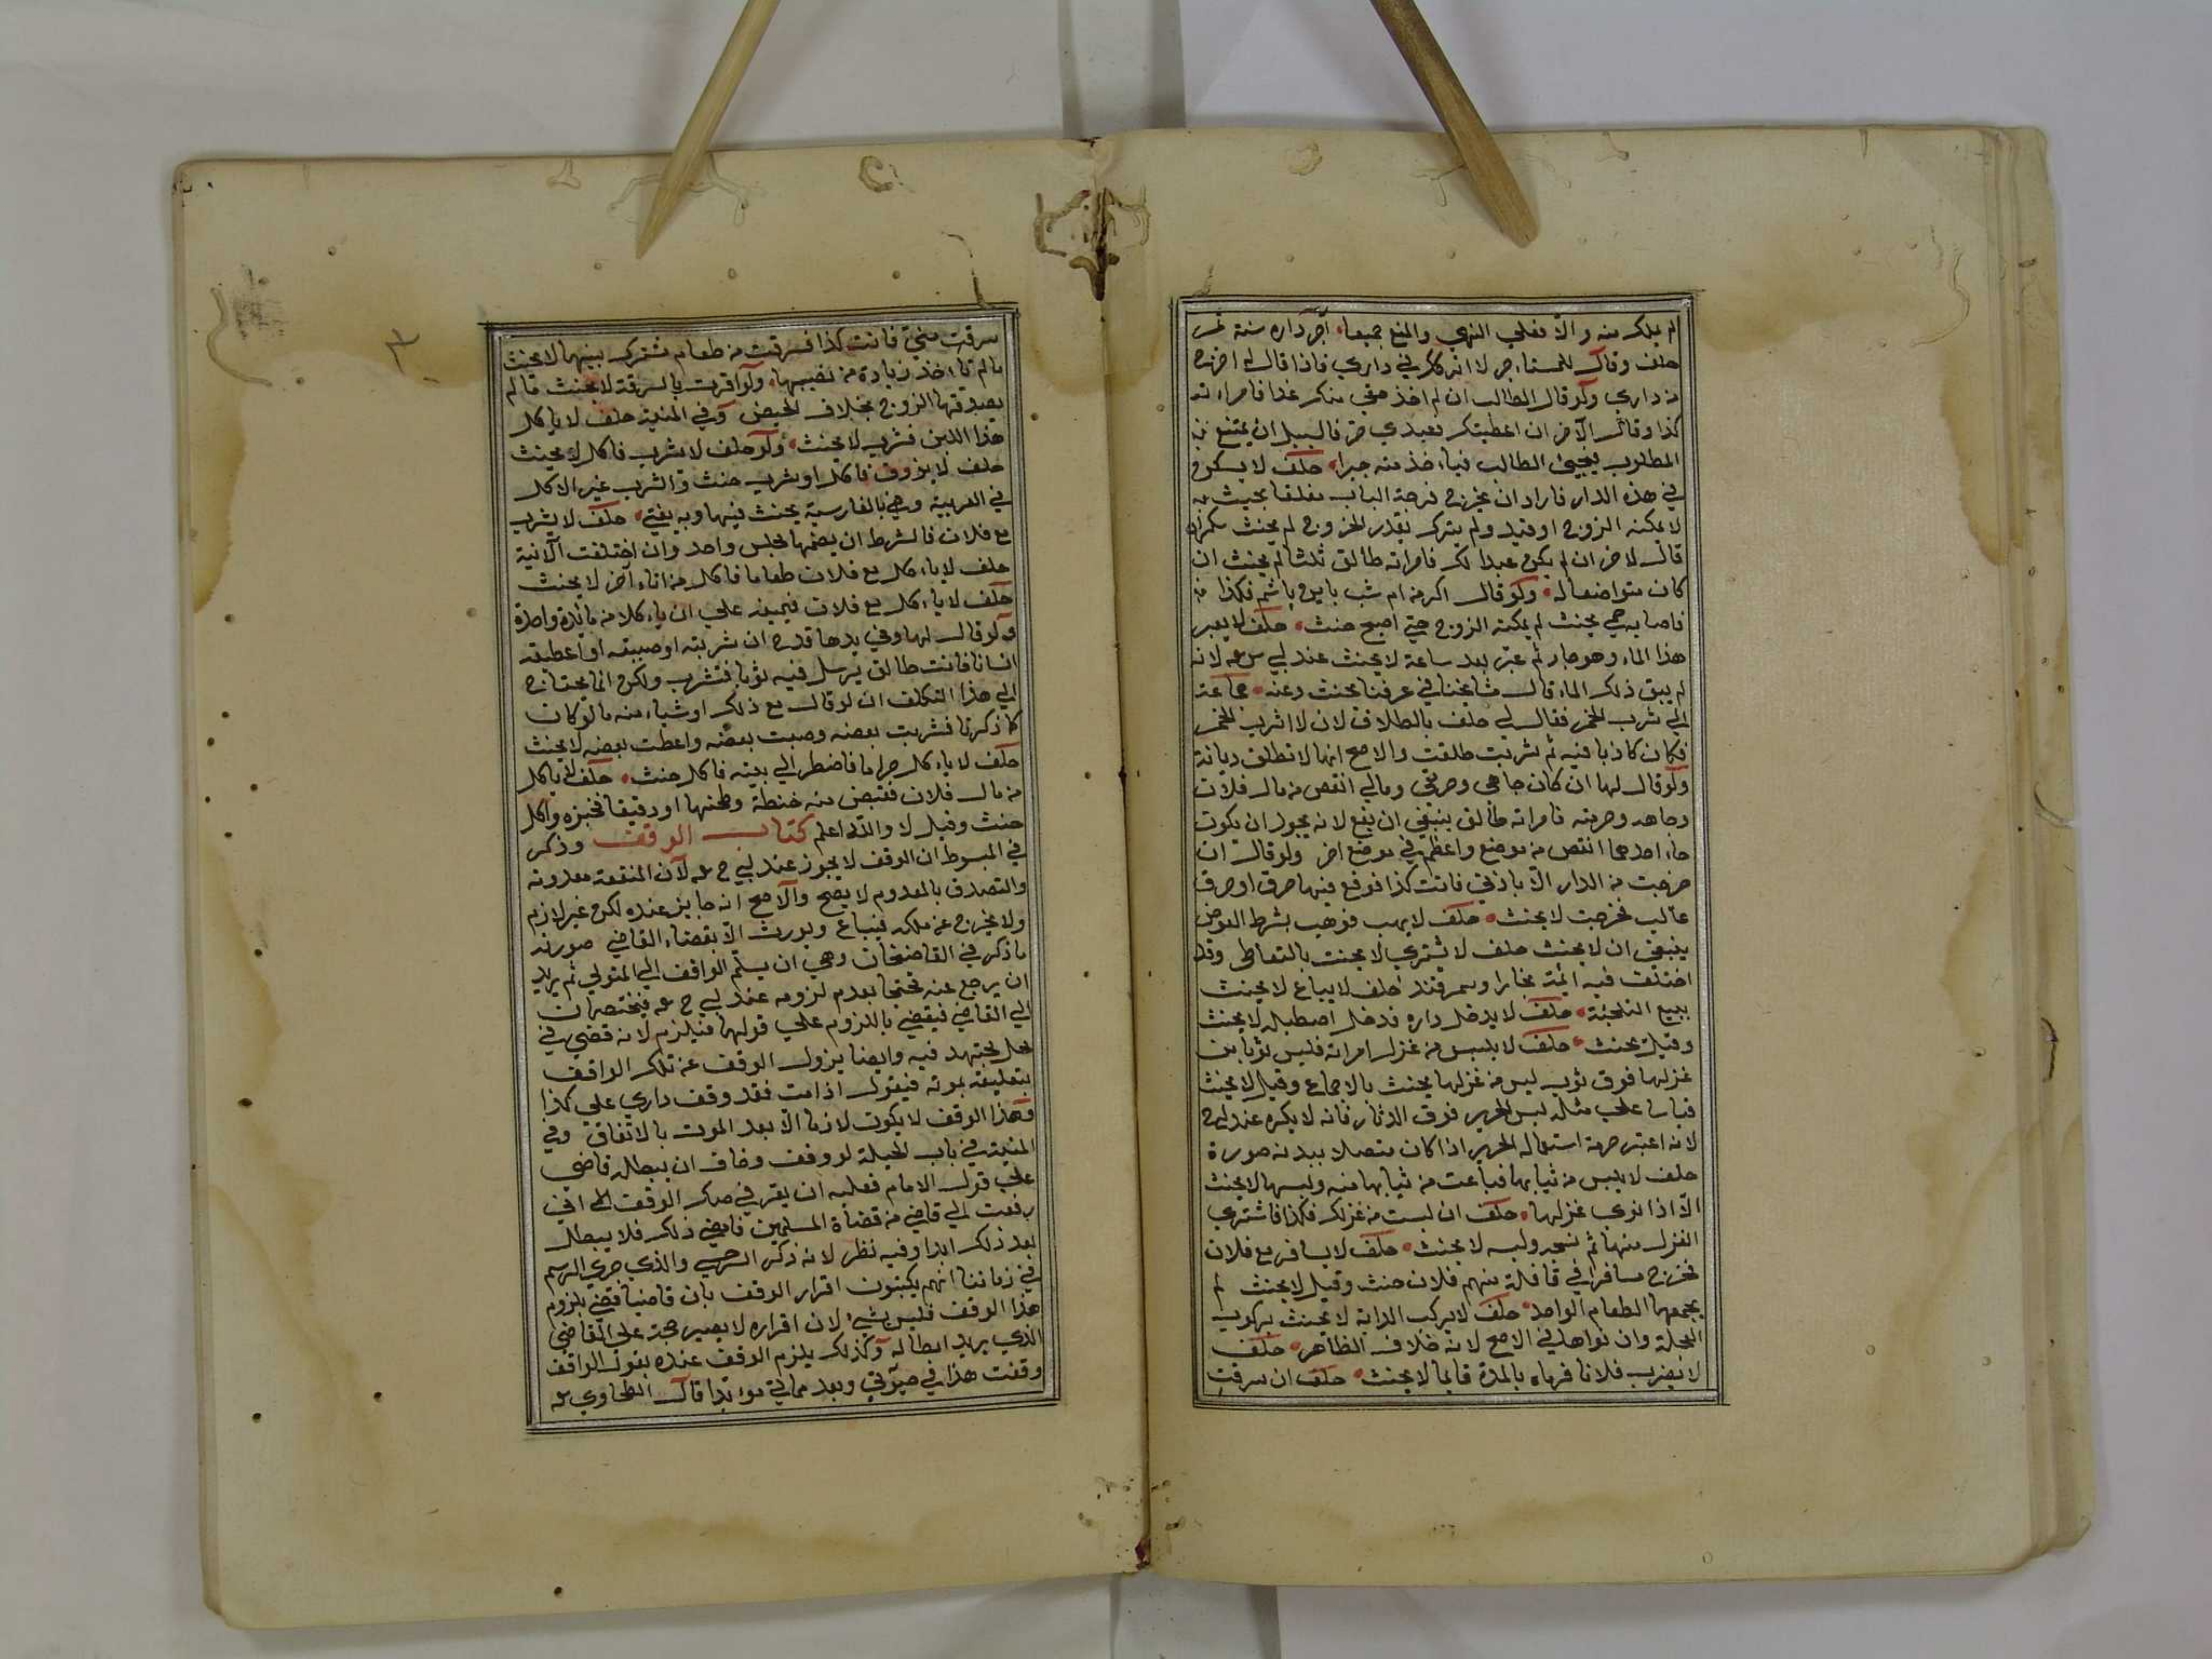 لم يملك منه والا فعلي النهي والمنع جميعا اجر داره سنة ثم
حلف وقال للمستاجر لا اتركك في داري فاذا قال له اخرج
من داري ولو قال الطالب ان لم اخذ حقي منك غدا فامراته
كذا وقال الآخر ان اعطيتك فعبدي حر فالسبيل ان يمتنع
المطلوب يجيئ الطالب فياخذ منه جبرا حلف لا يسكن
في هذه الدار فاراد ان يخرج فوجد الباب مغلقا بحيث
لا يمكنه الخروج او قيد ولم يترك بقدر الخروج لم يحنث
قال لاخر ان لم يكن عبدا لك فامراته طالق ثلثا لم يحنث ان
كان متواضعا له ولو قال اكر من ام شب باين باشم فكذا
فاصابه حمي بحيث لم يمكنه الخروج حتي اصبح حنث حلف لا يعبر
هذا الماء وهو جار ثم عبر بعد ساعة لا يحنث عند ابي س لانه
لم يبق ذلك الماء قال مشايخنا في عرفنا يحنث وعنه جماعة
الي شرب الخمر فقال لي حلف بالطلاق لان لا اشرب الخمر
فكان كاذبا فيه ثم شربت طلقت والاصح انها لا تطلق ديانة
ولو قال لها ان كان جاهي وحرمتي ومالي انقص من مال فلان
وجاهه وحرمته فامراته طالق ينبغي ان يقع لانه يجوز ان يكون
جاه احدهما انقص من موضع واعظم في موضع اخر ولو قال ان
خرجت من الدار الا باذني فانت كذا فوقع فيها حرق او غرق
غالب فخرجت لا يحنث حلف لا يهب فوهب بشرط العوض
ينبغي ان لا يحنث حلف لا يشتري لا يحنث بالتعاطي وقد
اختلف فيه ائمة بخارا وسمرقند حلف لا يباع لا يحنث
ببيع التلجئة حلف لا يدخل داره فدخل اصطبله لا يحنث
وقيل يحنث حلف لا يلبس من غزل امراته فلبس ثوبا من
غزلها فوق ثوب ليس من غزلها يحنث بالاجماع وقيل لا يحنث
قياسا علي مسئلة لبس الحرير فوق الدثار فانه لا يكره عند ابي ح
لانه اعتبر حرمة استعمال الحرير اذا كان متصلا ببدنه صورة
حلف لا يلبس من ثيابها فباعت من ثيابها منه ولبسها لا يحنث
الا اذا نوي غزلها حلف ان لبست من غزلك فكذا فاشتري
الغزل منها ثم نسجه ولبسه لا يحنث حلف لا يسافر مع فلان
فخرج مسافرا في قافلة منهم فلان حنث وقيل لا يحنث لم
يجمعها الطعام الواحد حلف لا يركب الدابة لا يحنث بركوب
العجلة وان نواها في الاصح لانه خلاف الظاهر حلف
لا يضرب فلانا فرماه بالمدة قايما لا يحنث حلف ان سرقت
سرقت مني فانت كذا فسرقت من طعام مشترك بينهما لا يحنث
ما لم تاخذ زيادة من نصيبها ولو اقرت بالسرقة لا يحنث ما لم
يصدقها الزوج بخلاف الحيض وفي المنية حلف لا ياكل
هذا اللبن فشرب لا يحنث ولو حلف لا يشرب فاكل لا يحنث
حلف لا يذوق فاكل او شرب حنث والشرب غير الاكل
في العربية وهي بالفارسية يحنث فيهما وبه يفتي حلف لا يشرب
مع فلان فالشرط ان يضمها مجلس واحد وان اختلفت الآنية
حلف لا ياكل مع فلان طعاما فاكل من اناء آخر لا يحنث
حلف لا ياكل مع فلان فيمينه علي ان ياكلا من مائدة واحدة
ولو قال لها وفي يدها قدح ان شربته او صببته او اعطيته
انسانا فانت طالق يرسل فيه ثوبا فتشرب ولكن انما يحتاج
الي هذا التكلف ان لو قال مع ذلك او شيا منه ما لو كان
كما ذكرنا فشربت بعضه وصبت بعضه واعطت بعضه لا يحنث
حلف لا ياكل حراما فاضطر الي ميتة فاكل حنث حلف لا ياكل
من مال فلان فقبض منه حنطة وطحنها او دقيقا فخبزه واكل
حنث وقيل لا والله اعلم كتاب الوقف وذكر
في المبسوط ان الوقف لا يجوز عند ابي ح لان المنفعة معدومة
والتصدق بالمعدوم لا يصح والاصح انه جايز عنده لكن غير لازم
ولا يخرج عن ملكه فيباع ويورث الا بقضاء القاضي صورته
ما ذكر في القاضيخان وهي ان يسلم الواقف الي المتولي ثم يريد
ان يرجع عنه محتجا بعدم لزومه عند ابي ح فيختصمان
الي القاضي فيقضي باللزوم علي قولهما فيلزم لانه قضي في
محل مجتهد فيه وايضا يزول الوقف عن تلك الواقف
بتعليقه بموته فيقول اذا مت فقد وقفت داري علي كذا
فهذا الوقف لا يكون لازما الا بعد الموت بالاتفاق وفي
المنية في باب الحيلة لو وقف وخاف ان يبطله قاضي
علي قول الامام فعليه ان يقر في صك الوقف اني
رفعت الي قاضي من قضاة المسلمين فامضي ذلك فلا يبطل
بعد ذلك ابدا وفيه نظر لانه ذكر السرخسي والذي جري الرسم
في زماننا انهم يكتبون اقرار الوقف بان قاضيا قضي بلزوم
هذا الوقف فليس بشيء لان اقراره لا يصير حجة علي القاضي
الذي يريد ابطاله وكذلك يلزم الوقف عنده بقول الواقف
وقفت هذا في حيوتي وبعد مماتي موبدا قال الطحاوي